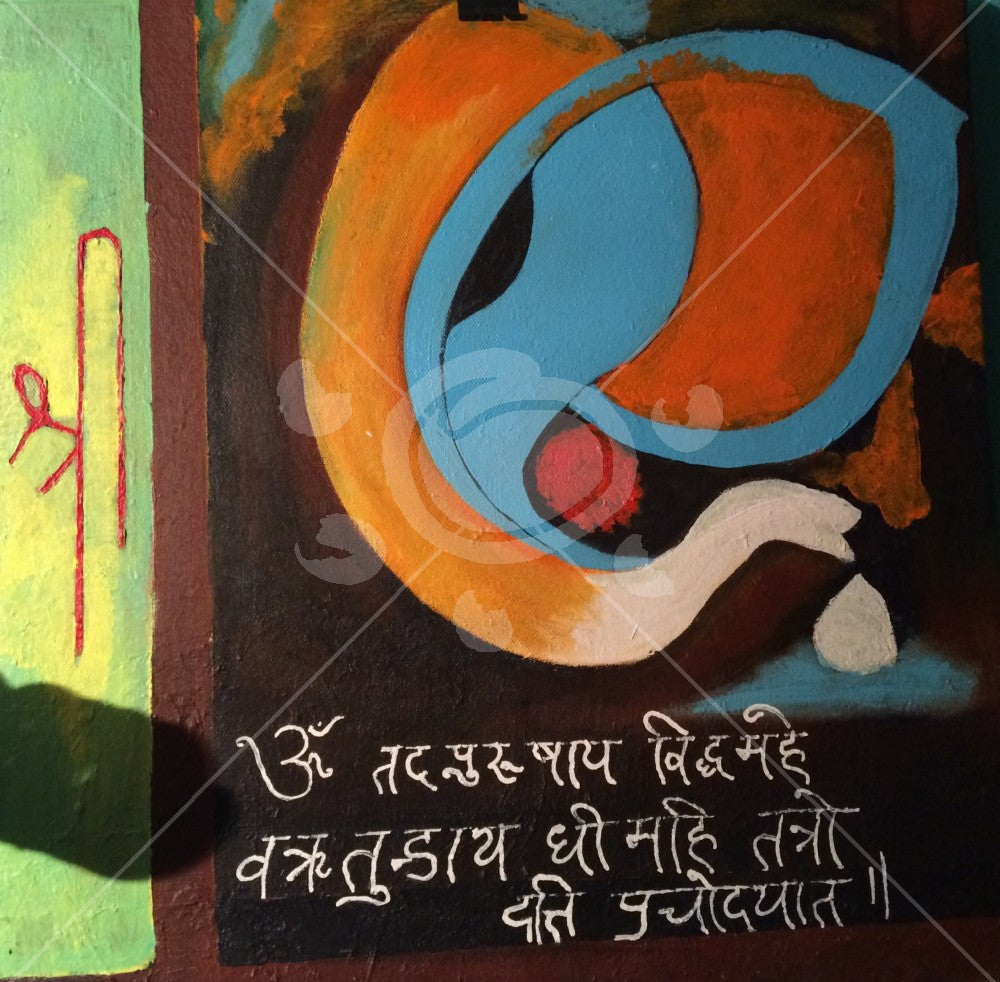 श्री
ॐ तदपुरुषाय विद्धमहे
वक्रतुन्डाय धीमहि तन्नो
दति प्रचोदयात ॥